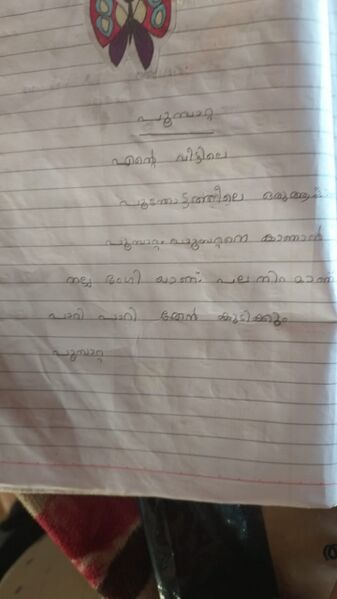 പൂമ്പാറ്റ
എന്റെ വീട്ടിലെ
പൂന്തോട്ടത്തിലെ ഒരു
പൂമ്പാറ്റ. പൂമ്പാറ്റനെ കാണാൻ
നല്ല ഭംഗി യാണ്. പല നിറ മാണ്
പാറി പാറി തേൻ കുടിക്കും
പൂമ്പാറ്റ